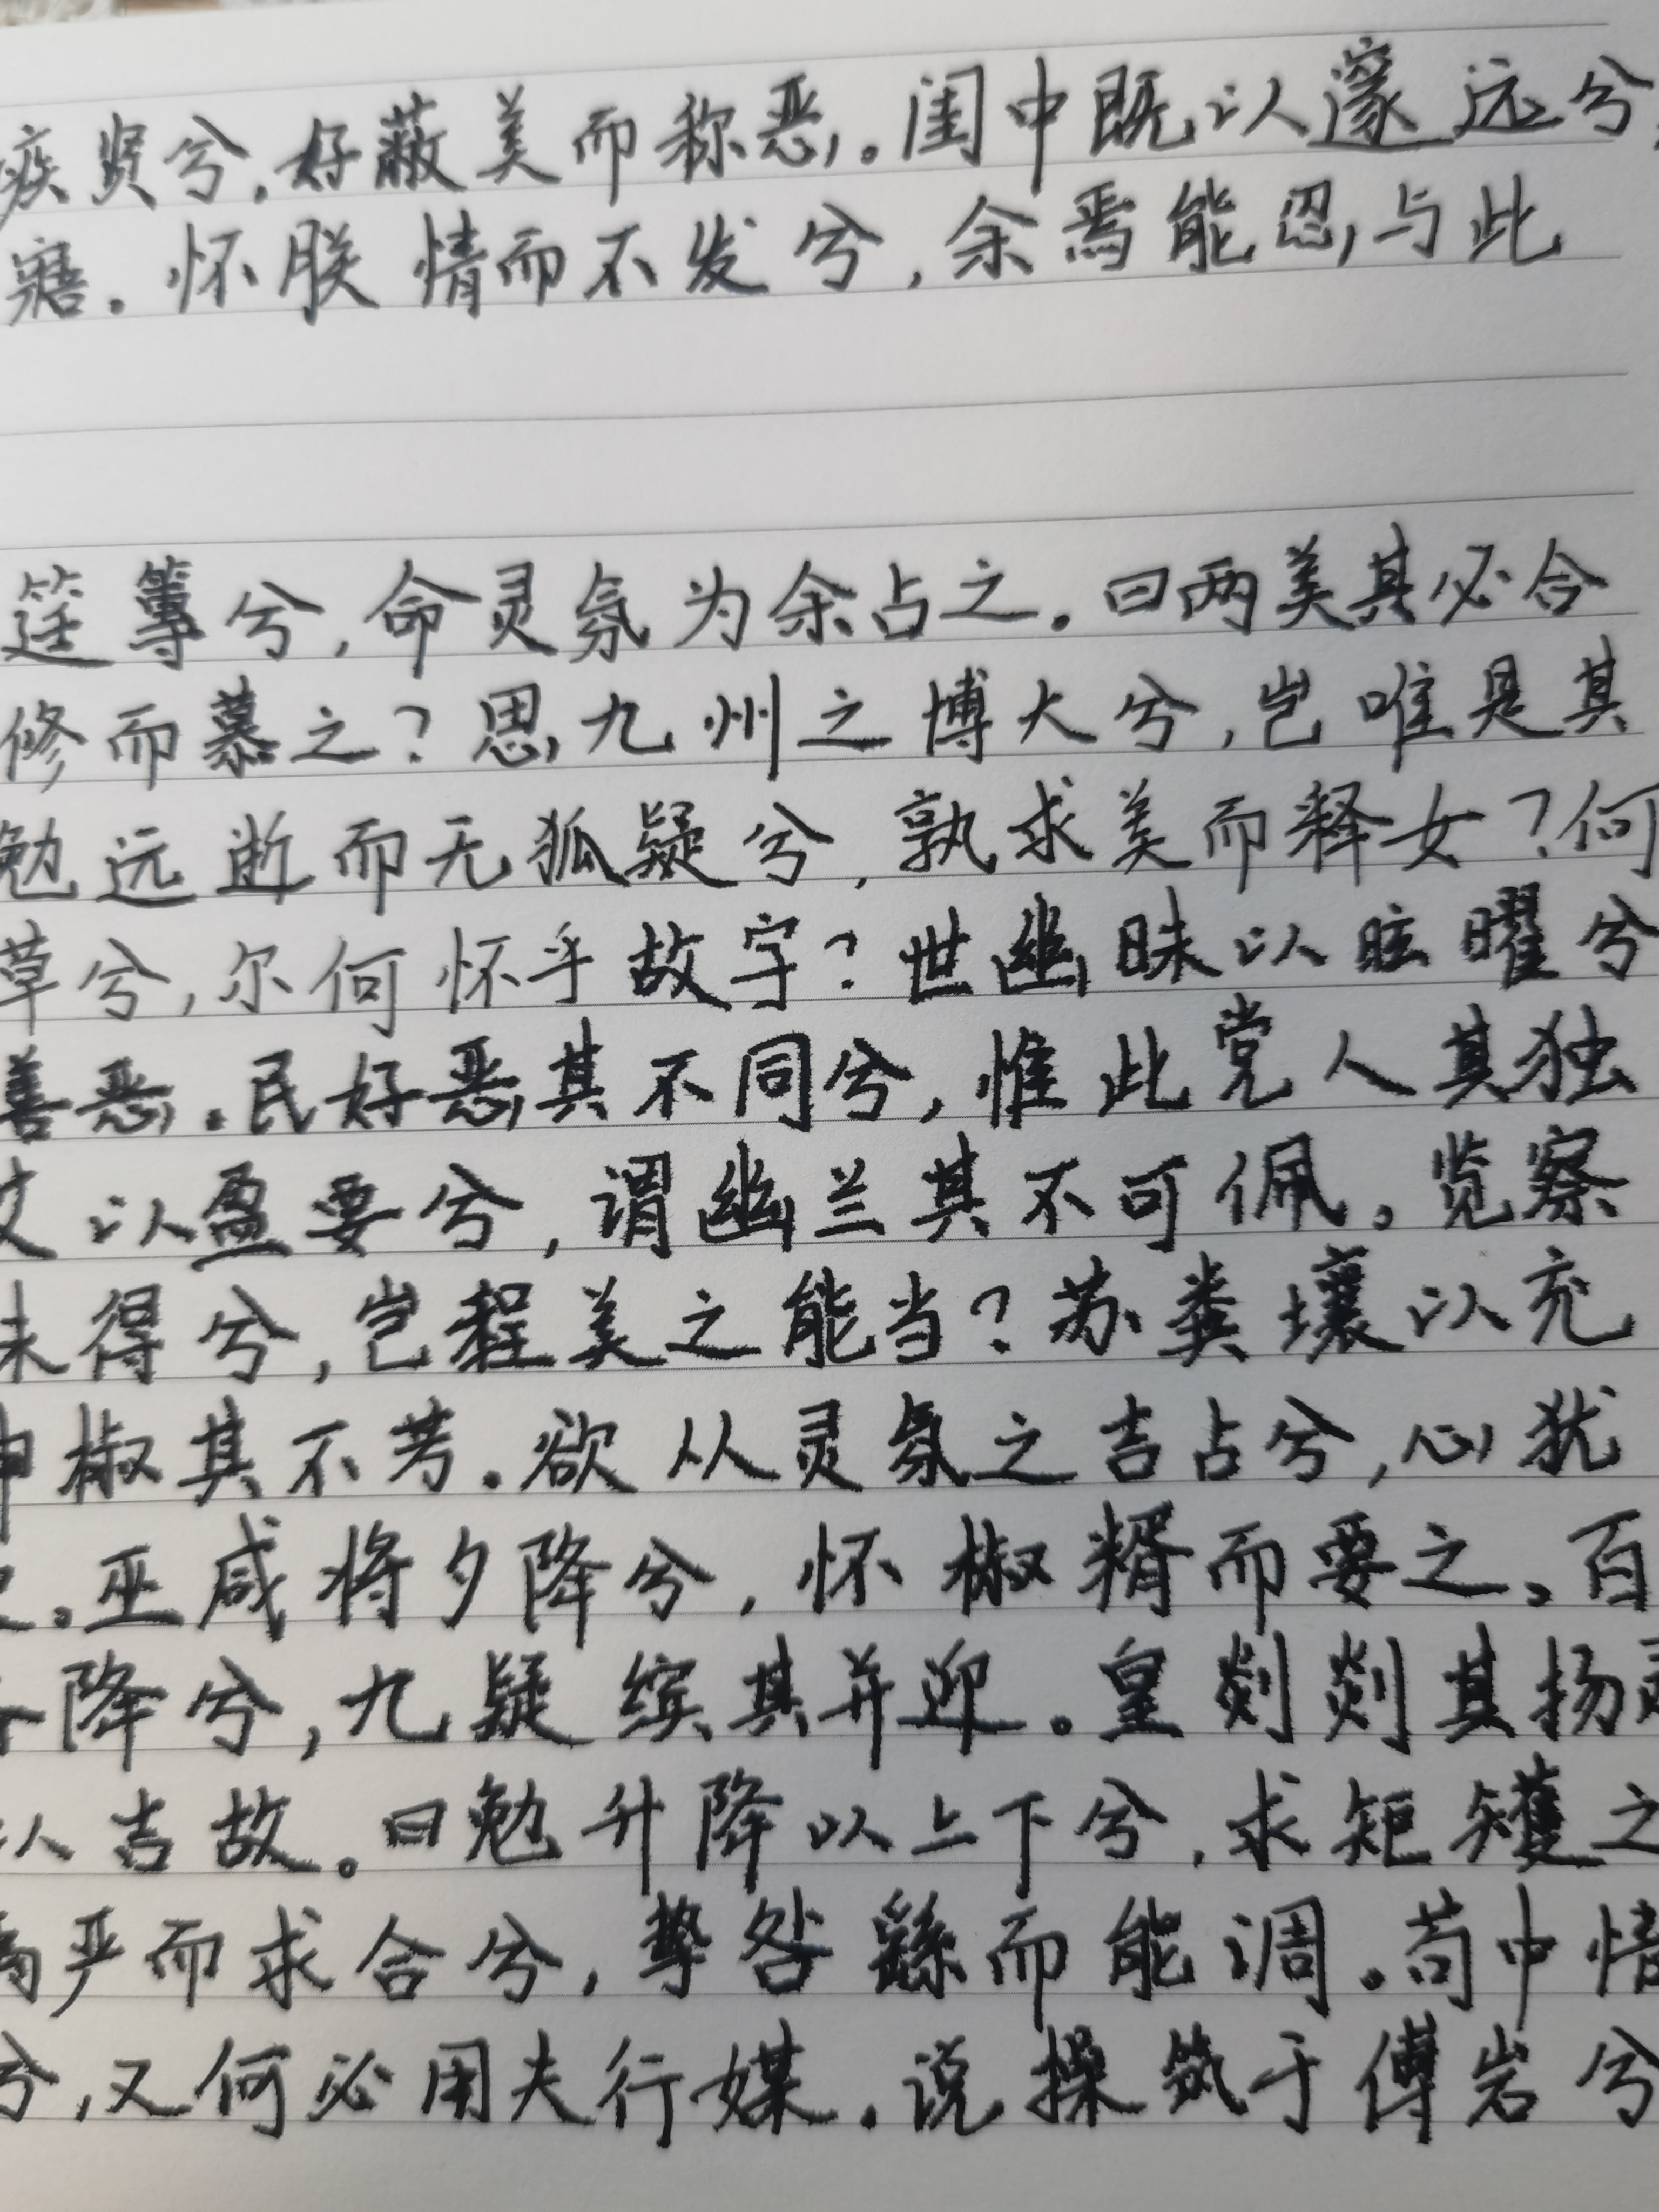 疾贤兮,好蔽美而称恶。闺中既以邃远兮,
寤。怀朕情而不发兮,余焉能忍与此
筳篿兮,命灵氛为余占之。曰两美其必合
修而慕之?思九州之博大兮,岂唯是其
勉远逝而无狐疑兮,孰求美而释女?何
草兮,尔何怀乎故宇?世幽昧以眩曜兮
善恶。民好恶其不同兮,惟此党人其独
艾以盈要兮,谓幽兰其不可佩。览察
未得兮,岂珵美之能当?苏粪壤以充
申椒其不芳。欲从灵氛之吉占兮,心犹
。巫咸将夕降兮,怀椒糈而要之。百
备降兮,九疑缤其并迎。皇剡剡其扬灵
以吉故。曰勉升降以上下兮,求矩矱之
严而求合兮,挚咎繇而能调。苟中情
兮,又何必用夫行媒。说操筑于傅岩兮